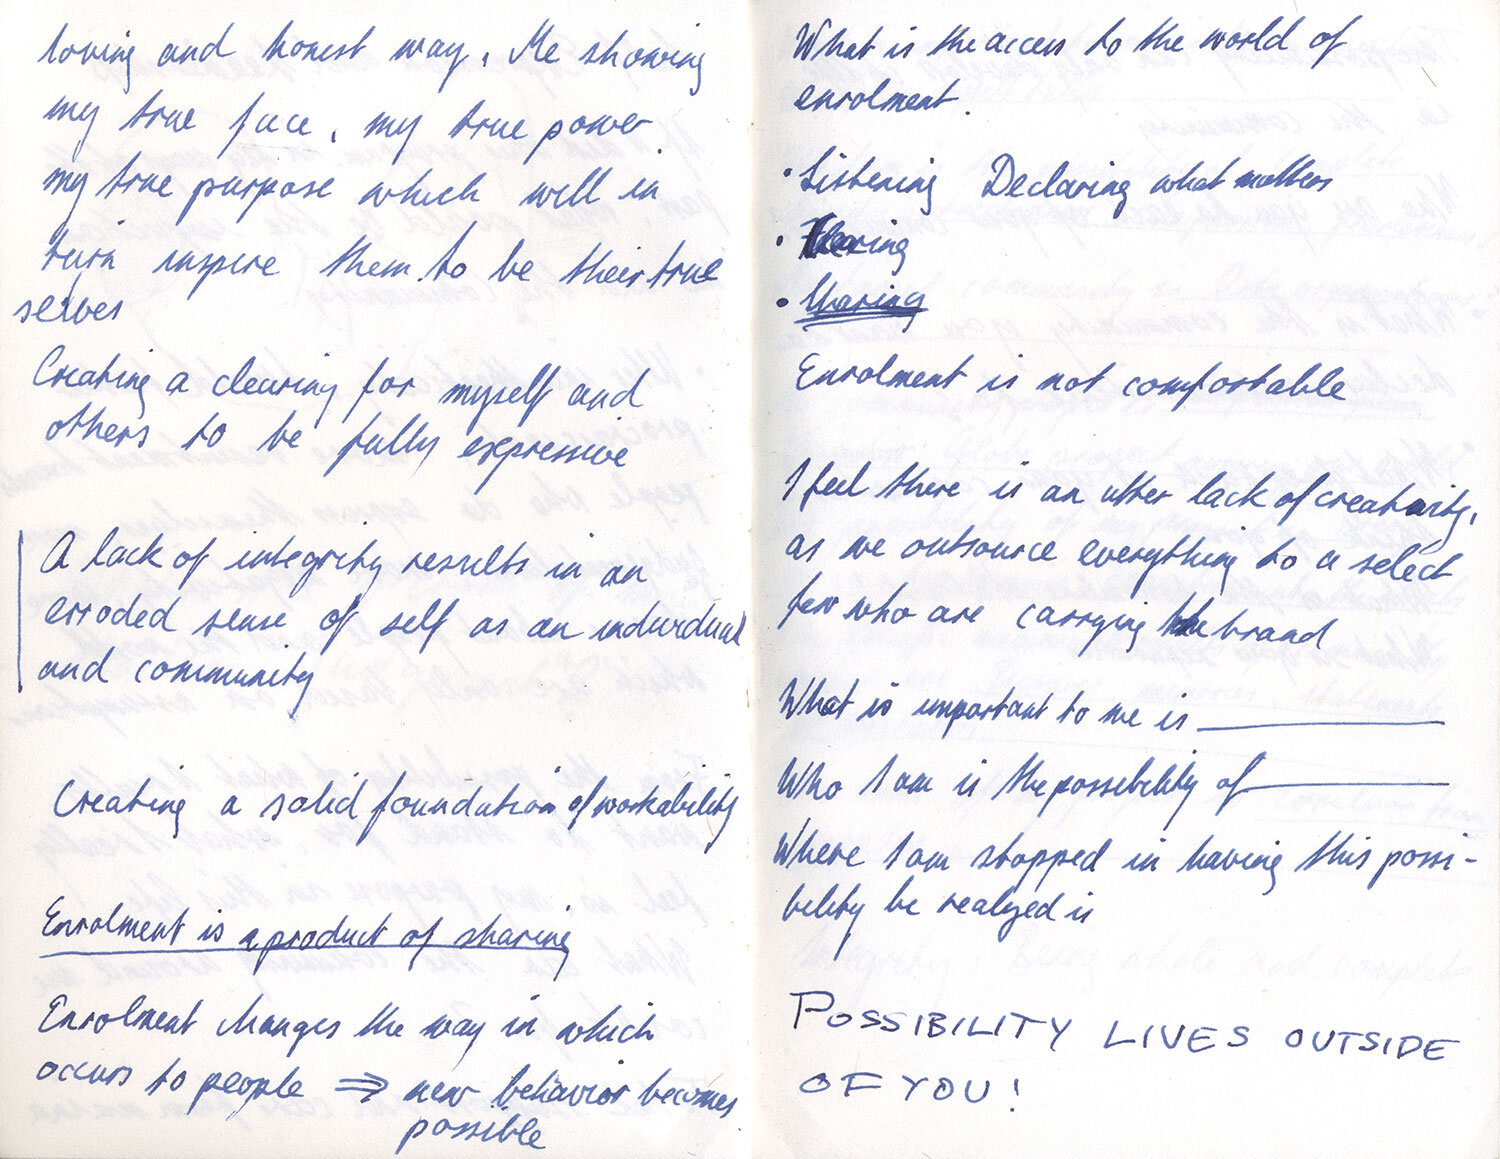 loving and honest way. Me showing
my true face, my true power
my true purpose which will in
turn inspire them to be their true
selves
Creating a clearing for myself and
others to be fully expressive
A lack of integrity ressults in an
erroded sense of self as an individual
and community
Creating a solid foundation of workability
Enrolment is a product of sharing
Enrolment changes the way in which
occurs to people ⇒ new behavior becomes
possible
What is the access to the world of
enrolment.
• Listening Declaring what matters
• Clearing
• Sharing
Enrolment is not comfortable
I feel there is an utter lack of creativity,
as we outsource everything to a select
few who are carrying the brand
What is important to me is ________
Who I am is the possibility of ________
Where I am stopped in having this possi-
bility be realized is
POSSIBILITY LIVES OUTSIDE
OF YOU!